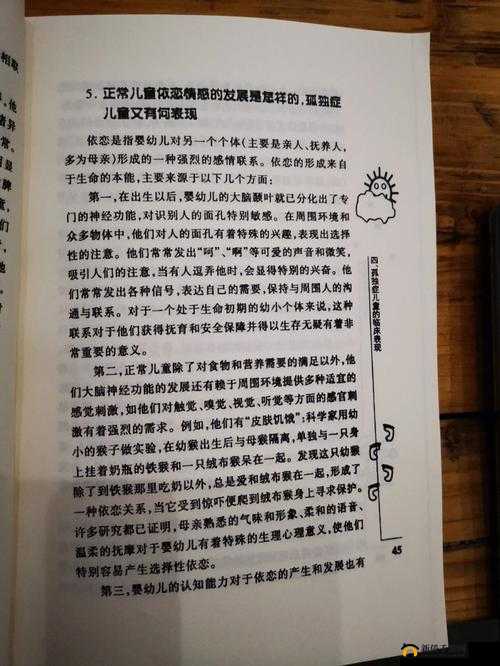 5. 正常儿童依恋情感的发展是怎样的,孤独症
儿童又有何表现
依恋是指婴幼儿对另一个个体(主要是亲人、抚养人,
多为母亲)形成的一种强烈的感情联系。依恋的形成来自
于生命的本能,主要来源于以下几个方面:
第一,在出生以后,婴幼儿的大脑颞叶就已分化出了专
门的神经功能,对识别人的面孔特别敏感。在周围环境和
众多物体中,他们对人的面孔有着特殊的兴趣,表现出选择
性的注意。他们常常发出“呵”、“啊”等可爱的声音和微笑,
吸引人们的注意,当有人逗弄他时,会显得特别的兴奋。他
们常常发出各种信号,表达自己的需要,保持与周围人的沟
通与联系。对于一个处于生命初期的幼小个体来说,这种
联系对于他们获得抚育和安全保障并得以生存无疑有着非
常重要的意义。
第二,正常儿童除了对食物和营养需要的满足以外,他
们大脑神经功能的发展还有赖于周围环境提供多种适宜的
感觉刺激,如他们对触觉、嗅觉、视觉、听觉等方面的感官刺
激有着强烈的需求。例如,他们有“皮肤饥饿”;科学家用幼
小的猴子做实验,在幼猴出生后与母猴隔离,单独与一只身
上挂着奶瓶的铁猴和一只绒布猴呆在一起。发现这只幼猴
除了到铁猴那里吃奶以外,总是爱和绒布猴在一起,形成了
一种依恋关系,当它受到惊吓便爬到绒布猴身上寻求保护。
许多研究都已证明,母亲熟悉的气味和形象、柔和的语音、
温柔的抚摩对于婴幼儿有着特殊的生理心理意义,使他们
特别容易产生选择性依恋。
第三,婴幼儿的认知能力对于依恋的产生和发展也有
四、孤独症儿童的临床表现
45